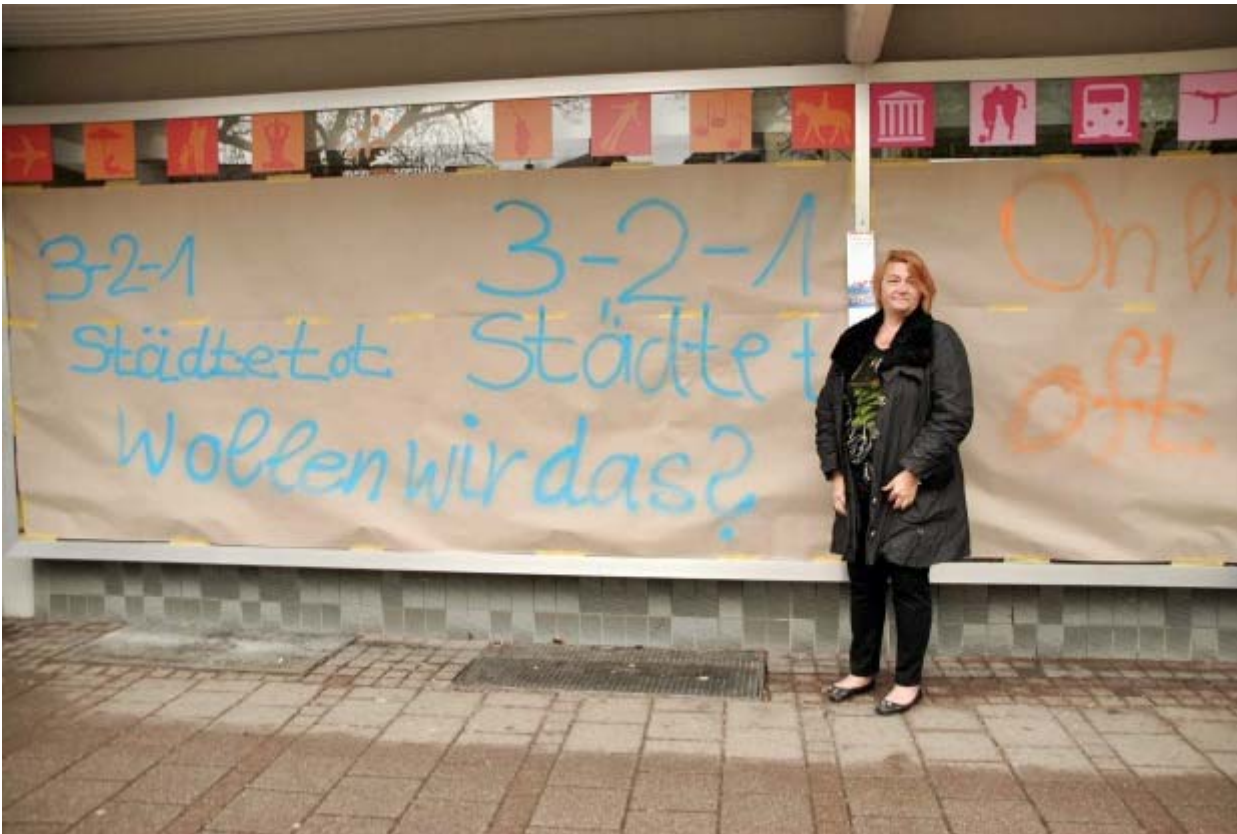 3-2-1
Städtetot
3-2-1
Städtet
Wollen wir das?
Onli
oft